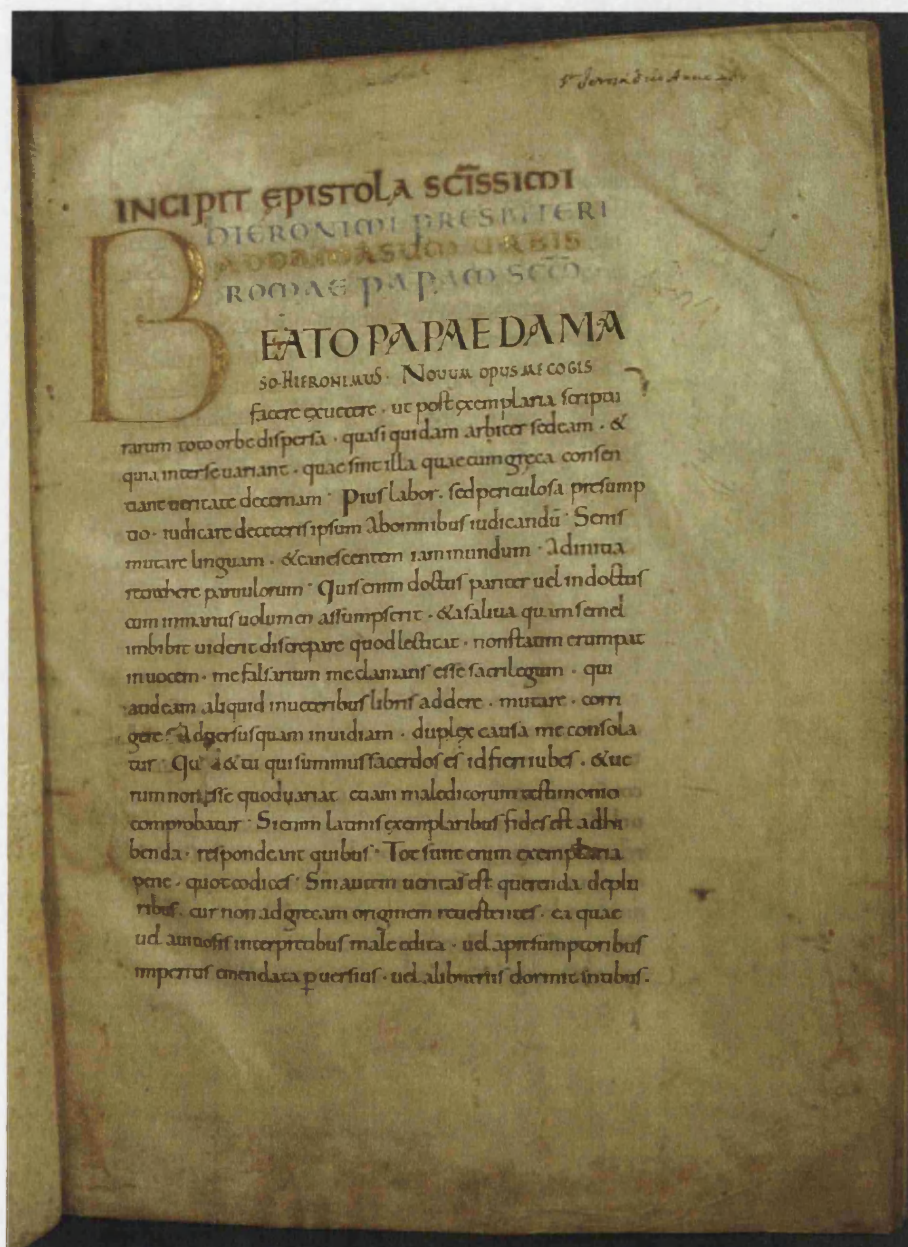 INCIPIT EPISTOLA SCĪSSIMI
HIERONIMI PRESBITERI
AD DAMASUM URBIS
ROMAE PAPAM SCM̄
BEATO PAPAE DAMA
SO HIERONIMUS · NOVUM OPUS ME COGIS
facere ex uetere · ut post exemplaria scriptu
rarum toto orbe dispersa · quasi quidam arbiter sedeam · &
quia inter se uariant · quae sint illa quae cum gręca consen
tiant ueritate decernam · Pius labor · sed periculosa presump
tio · iudicare de ceteris ipsum ab omnibus iudicandū · Senis
mutare linguam · & canescentem iam mundum · ad initia
retrahere paruulorum · Quis enim doctus pariter uel indoctus
cum in manus uolumen assumpserit · & a saliua quam semel
imbibit uiderit discrepare quod lectitat · non statim erumpat
in uocem · me falsarium me clamans esse sacrilegum · qui
audeam aliquid in ueteribus libris addere · mutare · corri
gere · Aduersus quam inuidiam · duplex causa me consola
tur · & tu qui summus sacerdos es id fieri iubes · & ue
rum non esse quod uariat etiam maledicorum testimonio
comprobatur · Si enim latinis exemplaribus fides est adhi
benda · respondeant quibus · Tot sunt enim exemplaria
pene · quot codices · Sin autem ueritas est querenda de plu
ribus · cur non ad grecam originem reuertentes · ea quae
uel a uitiosis interpretibus male edita · uel a presumptoribus
imperitis emendata ꝑuersius · uel a librariis dormitantibus ·